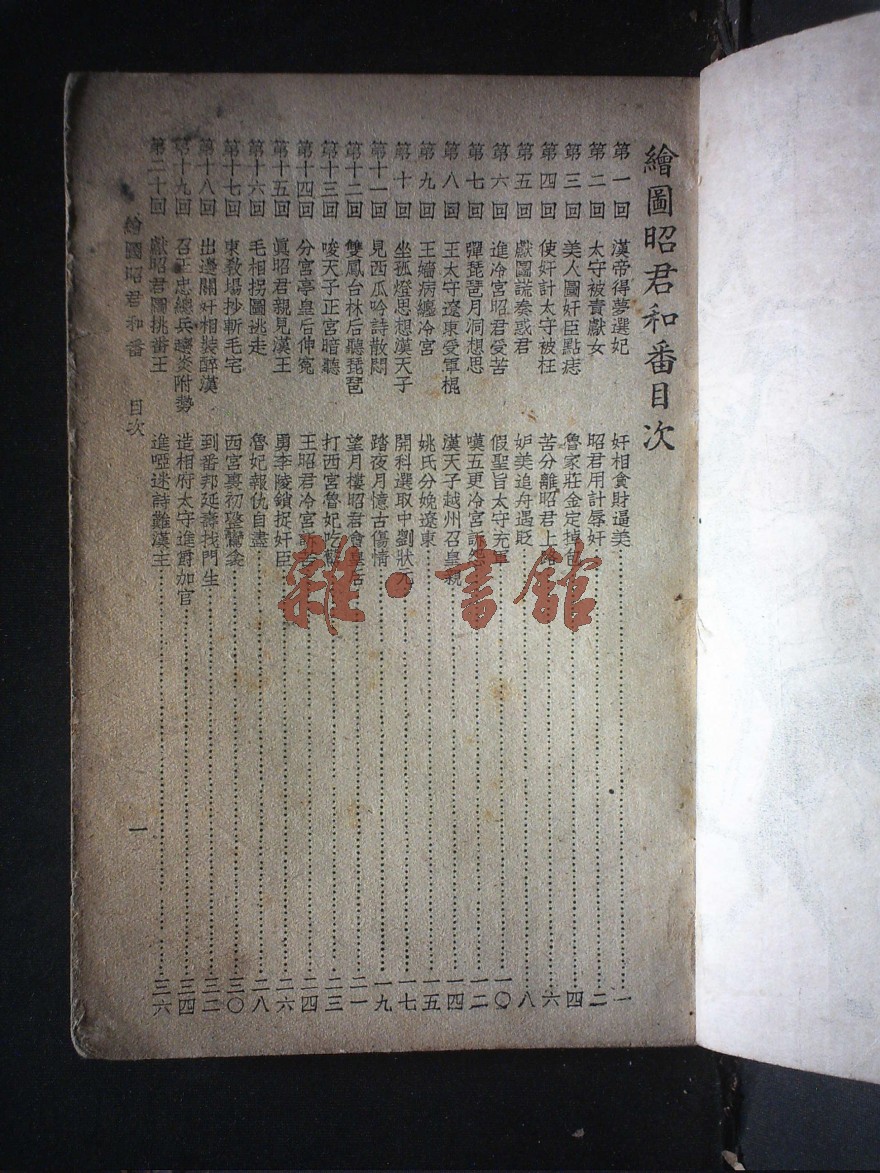 繪圖昭君和番目次
第一回 漢帝得夢選妃 奸相貪財逼美 一
第二回 太守被責獻女 昭君用計辱奸 二
第三回 美人圖奸臣點痣 魯家莊金定掉包 四
第四回 使奸計太守被枉 苦分離昭君上路 六
第五回 獻圖謊奏惑君 妒美追舟遇貶 八
第六回 進冷宮昭君受苦 假聖旨太守充軍 一〇
第七回 彈琵琶月洞想思 嘆五更冷宮訴怨 一二
第八回 王太守遼東受軍棍 漢天子越州召皇親 一四
第九回 王嬙病纏冷宮 姚氏分娩遼東 一五
第十回 坐孤燈思想漢天子 開科選取中劉狀元 一七
第十一回 見西瓜吟詩散悶 踏夜月憶古傷情 一九
第十二回 雙鳳台林后聽琵琶 望月樓昭君會皇后 二一
第十三回 唆天子正宮暗聽 打西宮魯妃吃驚 二三
第十四回 分宮亭皇后伸冤 王昭君冷宮訴苦 二四
第十五回 眞昭君親見漢王 勇李陵鎖捉奸臣 二六
第十六回 毛相拐圖逃走 魯妃報仇自盡 二八
第十七回 東敎場抄斬毛宅 西宮裏初整鸞衾 三〇
第十八回 出邊關奸相裝醉漢 到番邦延壽找門生 三二
第十九回 召正忠總兵趨炎附勢 造相府太守進爵加官 三四
第二十回 獻昭君圖挑番王 進啞迷詩難漢主 三六
繪圖昭君和番 目次 一
雜·書館